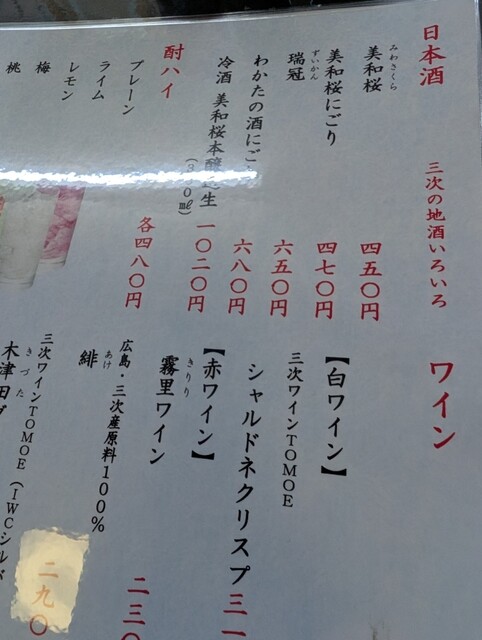 日本酒
三次の地酒いろいろ
みわさくら
美和桜
四五〇円
美和桜にごり
四七〇円
ずいかん
瑞冠
六五〇円
わかたの酒にご
六八〇円
冷酒 美和桜本醸造生
一〇二〇円
酎ハイ
プレーン
ライム
レモン
梅
桃
各四八〇円
ワイン
【白ワイン】
三次ワインTOMOE
シャルドネクリスプ
三一
【赤ワイン】
きりり
霧里ワイン
二三〇
広島・三次産原料100%
あけ
緋
二九〇
三次ワインTOMOE(IWCシルバ
きづた
木津田